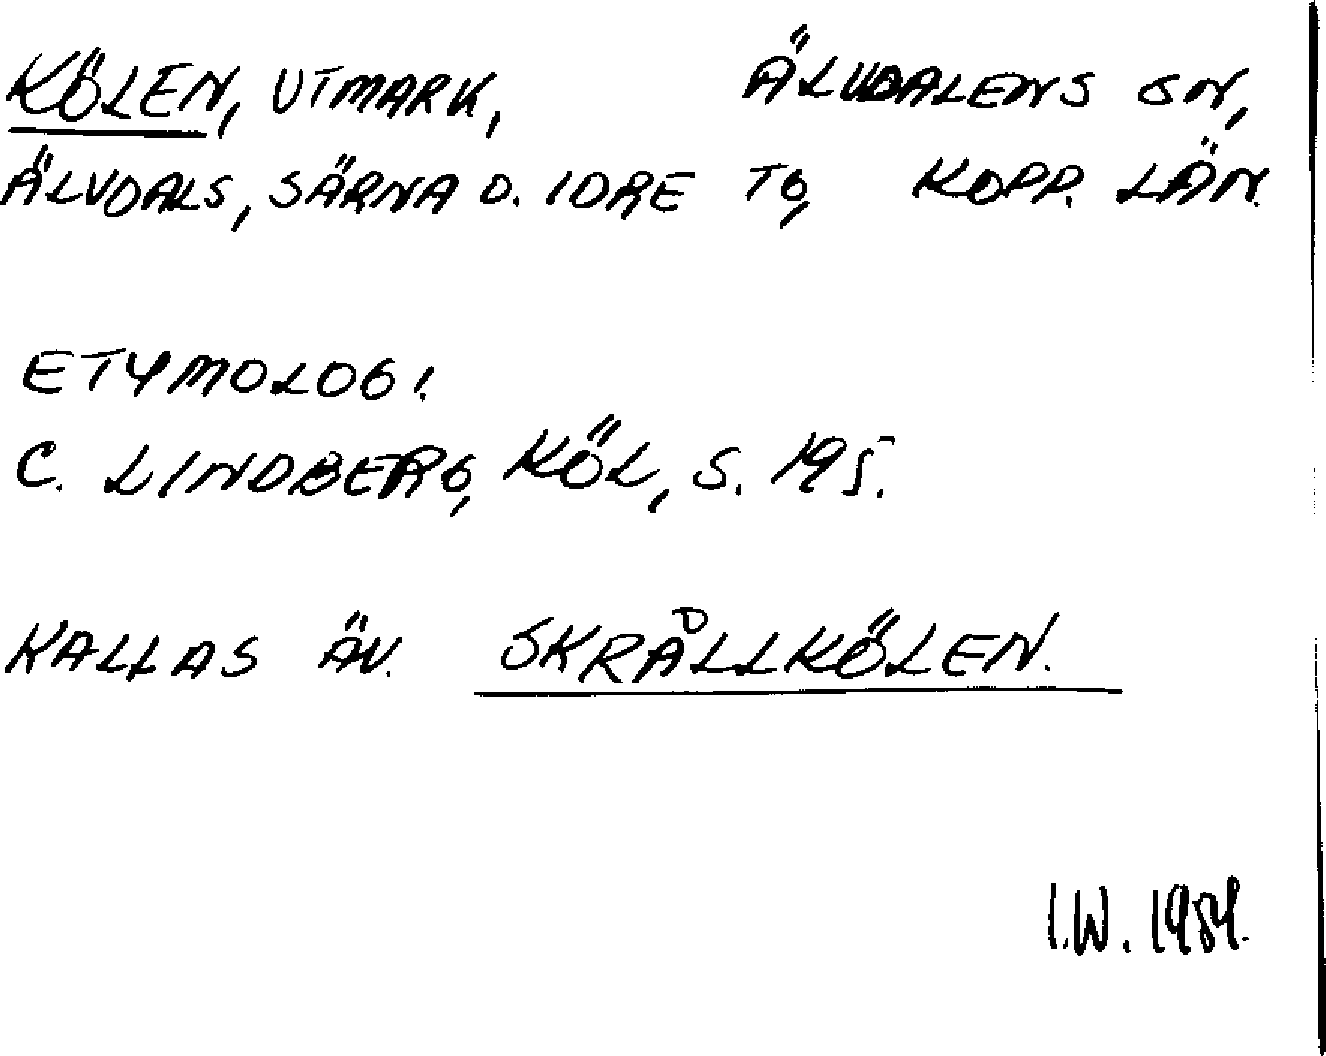 KÖLEN, UTMARK, ÄLVDALENS SN,
ÄLVDALS, SÄRNA O. IDRE TG, KOPP. LÄN.
ETYMOLOGI.
C. LINDBERG, KÖL, S. 195.
KALLAS ÄV. SKRÅLLKÖLEN.
I.W. 1984.